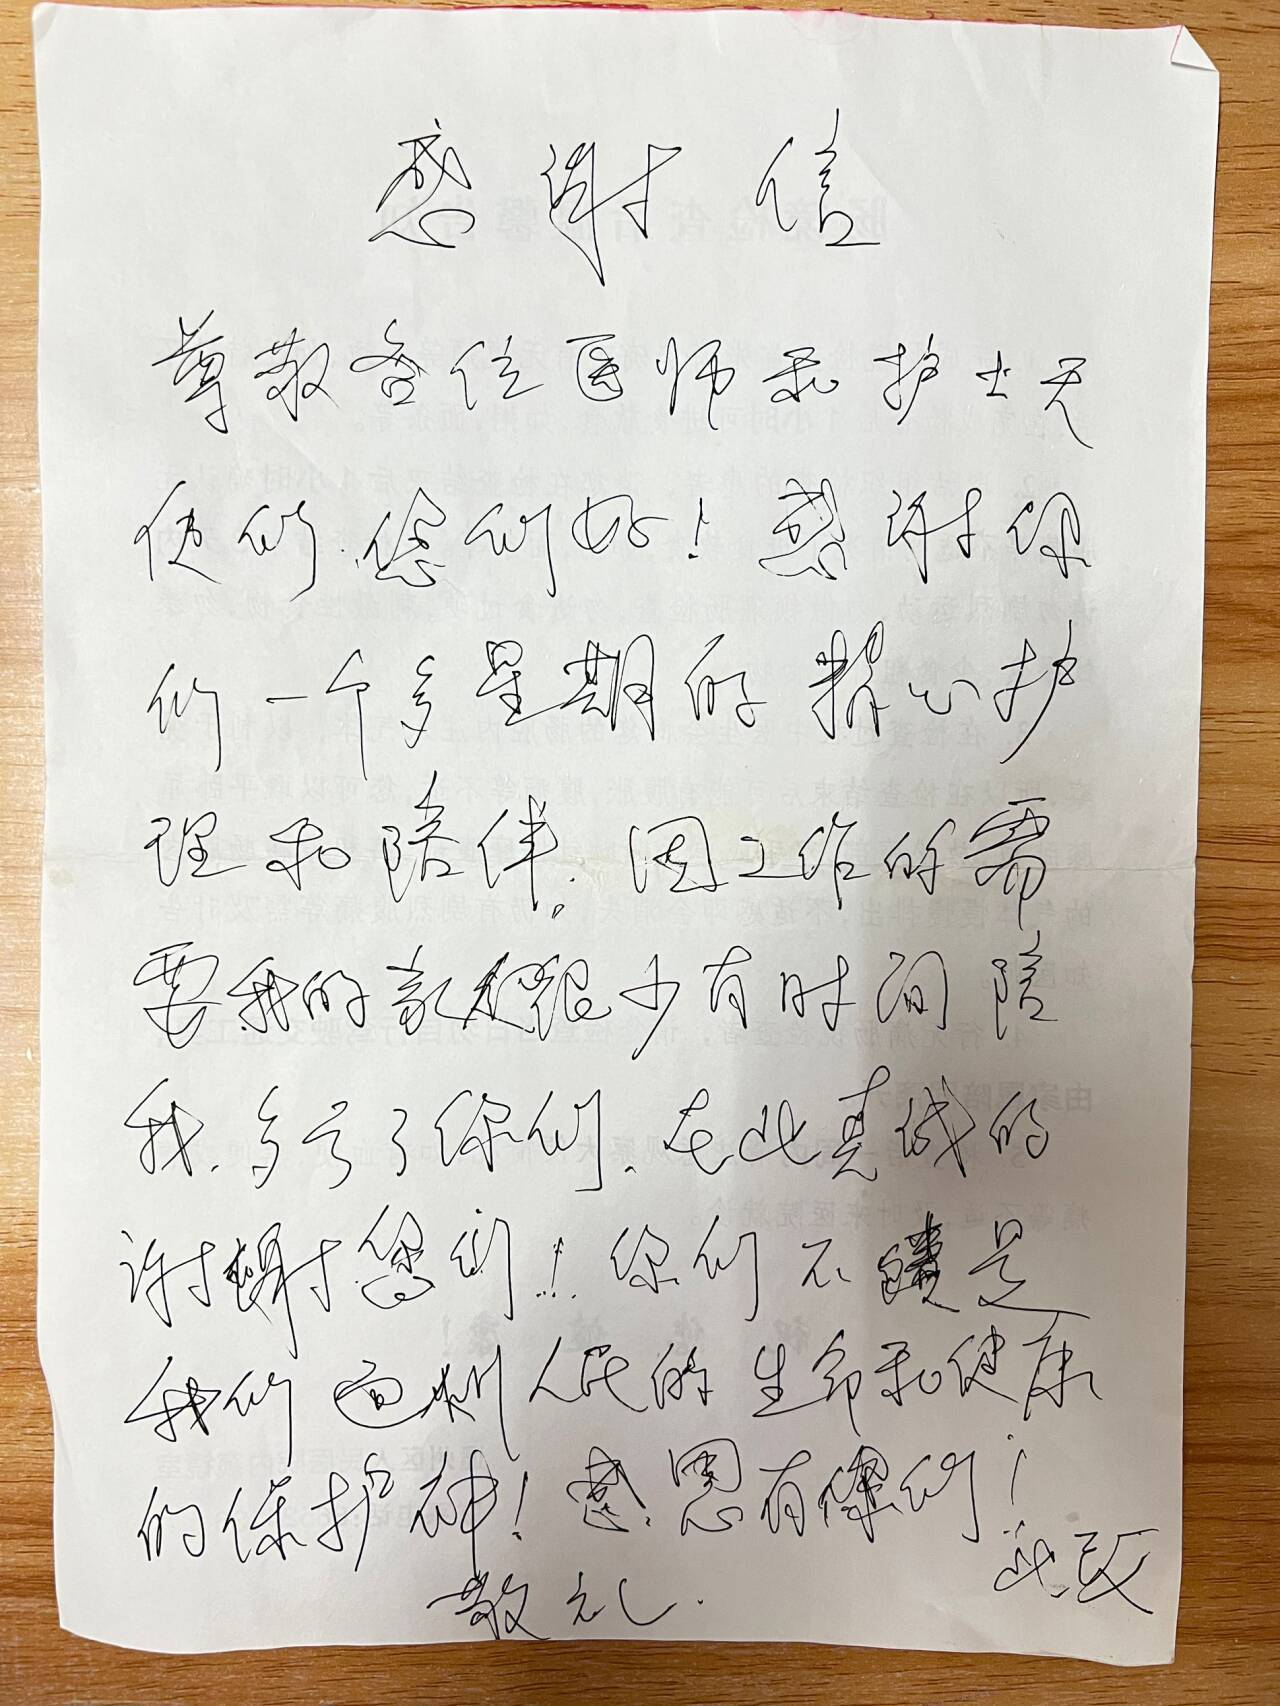 感谢信
尊敬各位医师和护士天
使们.您们好！感谢你
们一个多星期的精心护
理和陪伴。因工作的需
要我的家人很少有时间陪
我.多亏了你们.在此真诚的
谢谢您们！！你们不愧是
我们通州人民的生命和健康
的保护神！感恩有你们！
此致
敬礼.